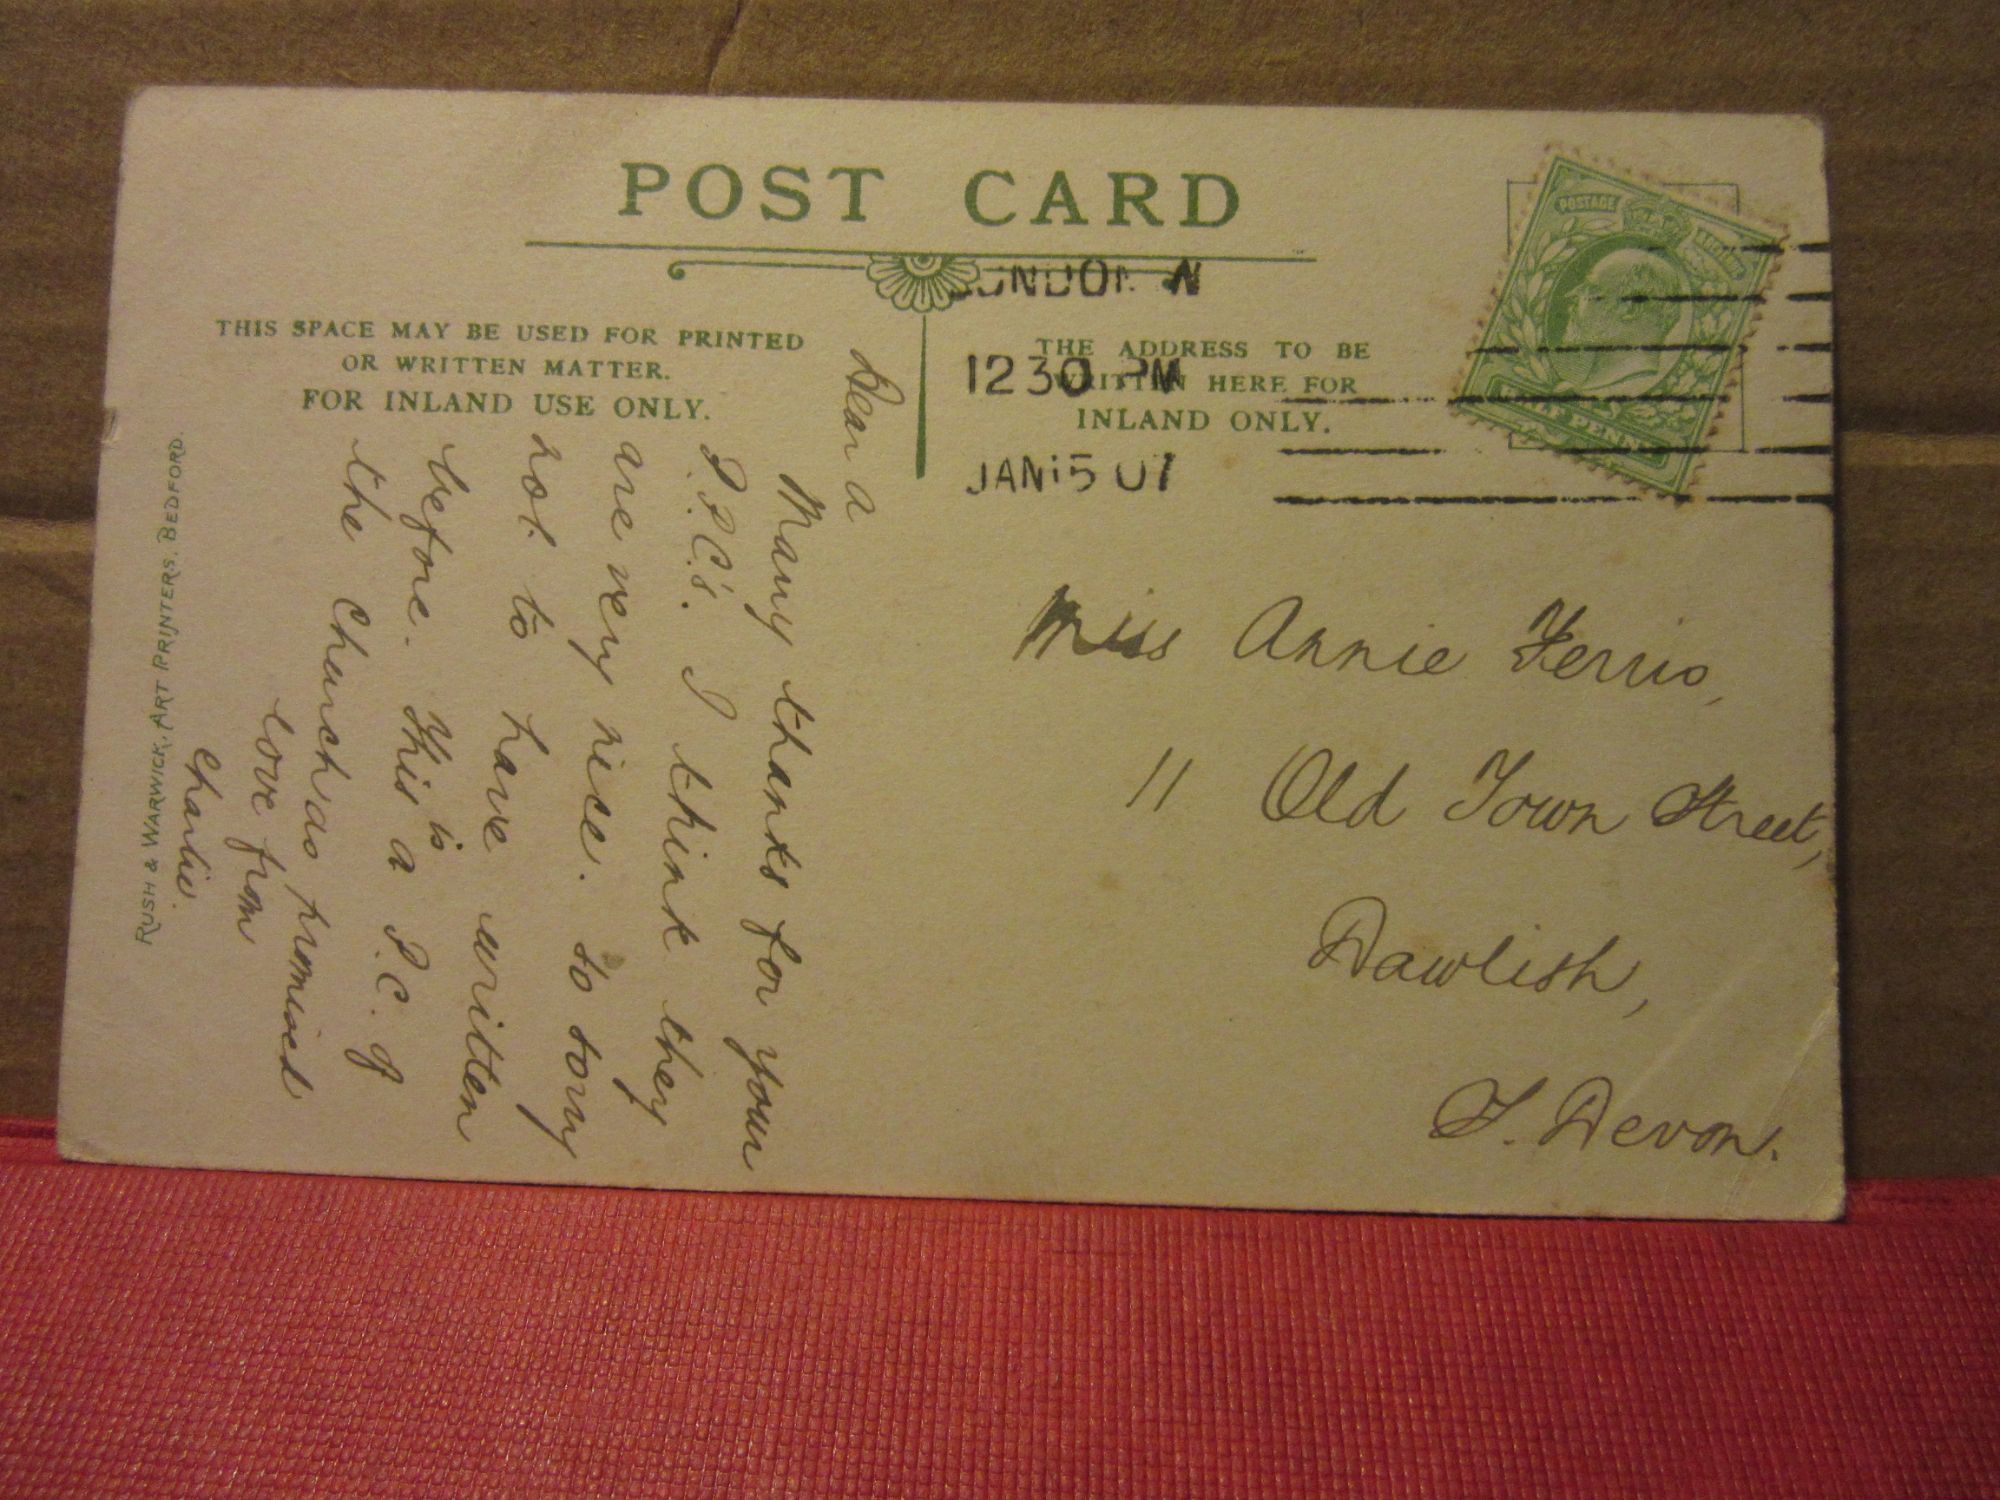 POST CARD
THIS SPACE MAY BE USED FOR PRINTED
OR WRITTEN MATTER.
FOR INLAND USE ONLY.
THE ADDRESS TO BE
WRITTEN HERE FOR
INLAND ONLY.
LONDON N
12 30 PM
JAN 15 07
POSTAGE REVENUE
HALFPENNY
Dear a
Many thanks for your
P.P.C's. I think they
are very nice. so sorry
not to have written
before. This is a P.C. of
the Church as promised
love from
Charlie.
Miss Annie Ferris,
11 Old Town Street,
Dawlish,
S. Devon.
RUSH & WARWICK, ART PRINTERS, BEDFORD.